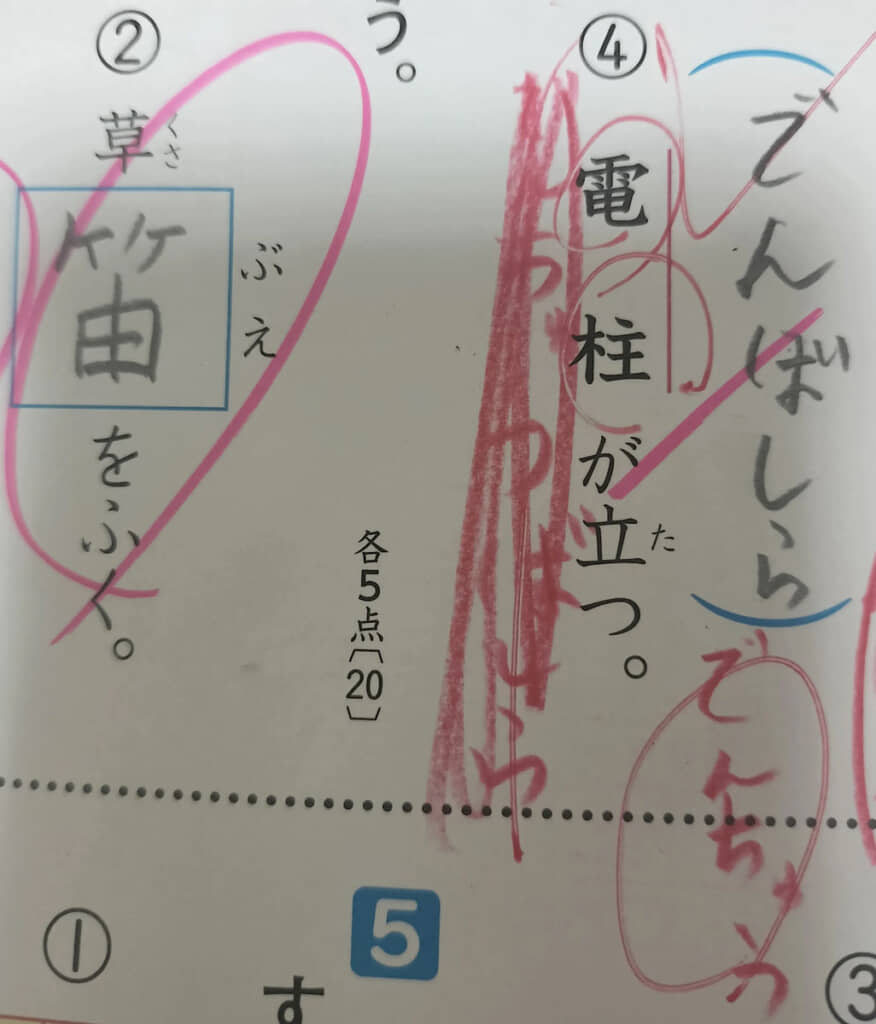 ④
電柱が立つ。
た
でんばしら
でんちゅう
う。
各5点〔20〕
②
草笛をふく。
くさ
ぶえ
③
5
す
①